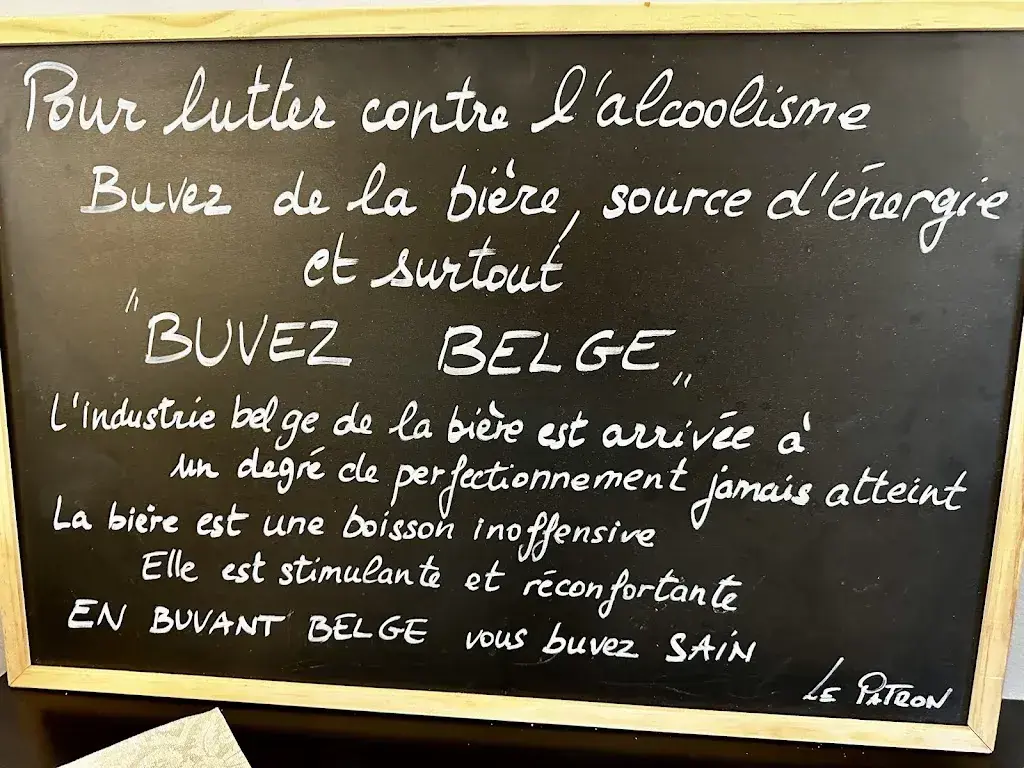 Pour lutter contre l'alcoolisme
Buvez de la bière, source d'énergie
et surtout
"BUVEZ BELGE"
L'industrie belge de la bière est arrivée à
un degré de perfectionnement jamais atteint
La bière est une boisson inoffensive
Elle est stimulante et réconfortante
EN BUVANT BELGE vous buvez SAIN
LE PATRON